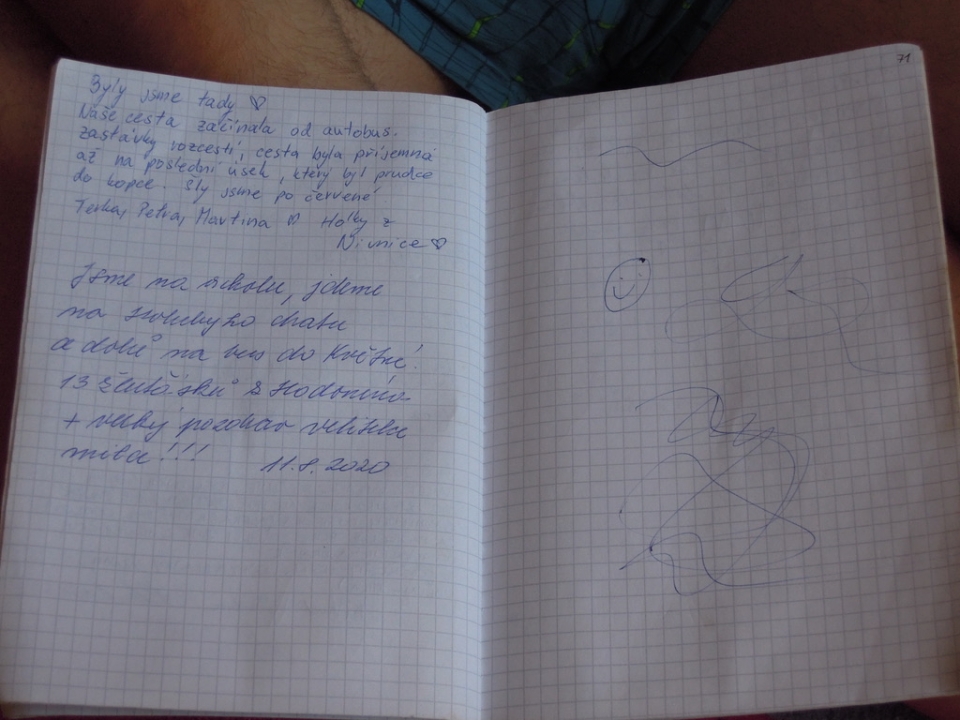 Byly jsme tady ♡
Naše cesta začínala od autobus.
zastávky rozcestí, cesta byla příjemná
až na poslední úsek, který byl prudce
do kopce. Šly jsme po červené
Terka, Petra, Martina ♡ Holky z
Nivnice ♡
Jsme na vrcholu, jdeme
na Holubyho chatu
a dolů na bus do Květné!
13 z Hodonína
+ velký pozdrav
11.8.2020
71